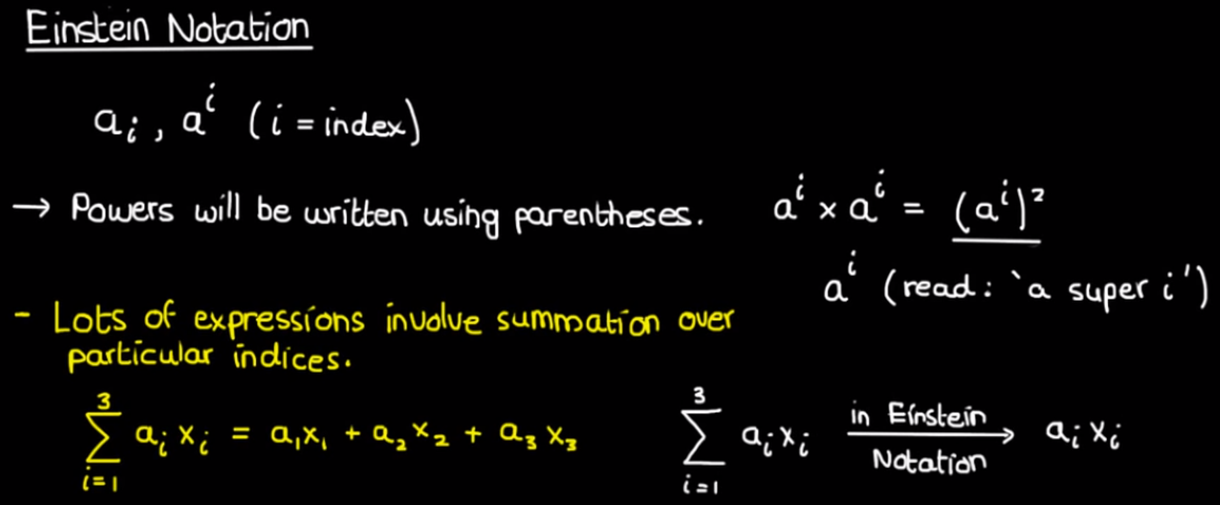 Einstein Notation
aᵢ, aⁱ (i = index)
→ Powers will be written using parentheses.
aⁱ × aⁱ = (aⁱ)²
aⁱ (read: `a super i')
- Lots of expressions involve summation over
particular indices.
3
∑ aᵢxᵢ = a₁x₁ + a₂x₂ + a₃x₃
i=1
3
∑ aᵢxᵢ in Einstein Notation → aᵢxᵢ
i=1